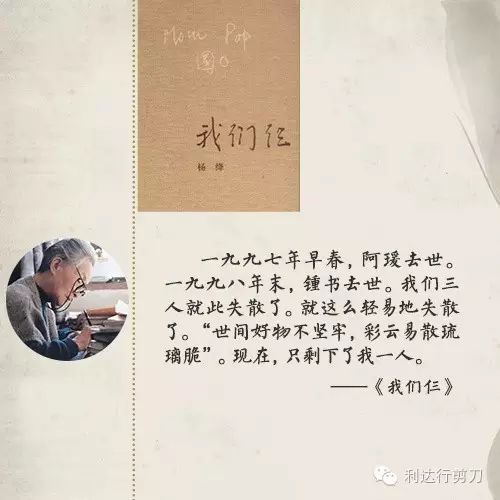 Mom Pop
圆〇
我们仨
杨绛
一九九七年早春，阿瑗去世。
一九九八年末，锺书去世。我们三
人就此失散了。就这么轻易地失散
了。“世间好物不坚牢，彩云易散琉
璃脆”。现在，只剩下了我一人。
——《我们仨》
利达行剪刀